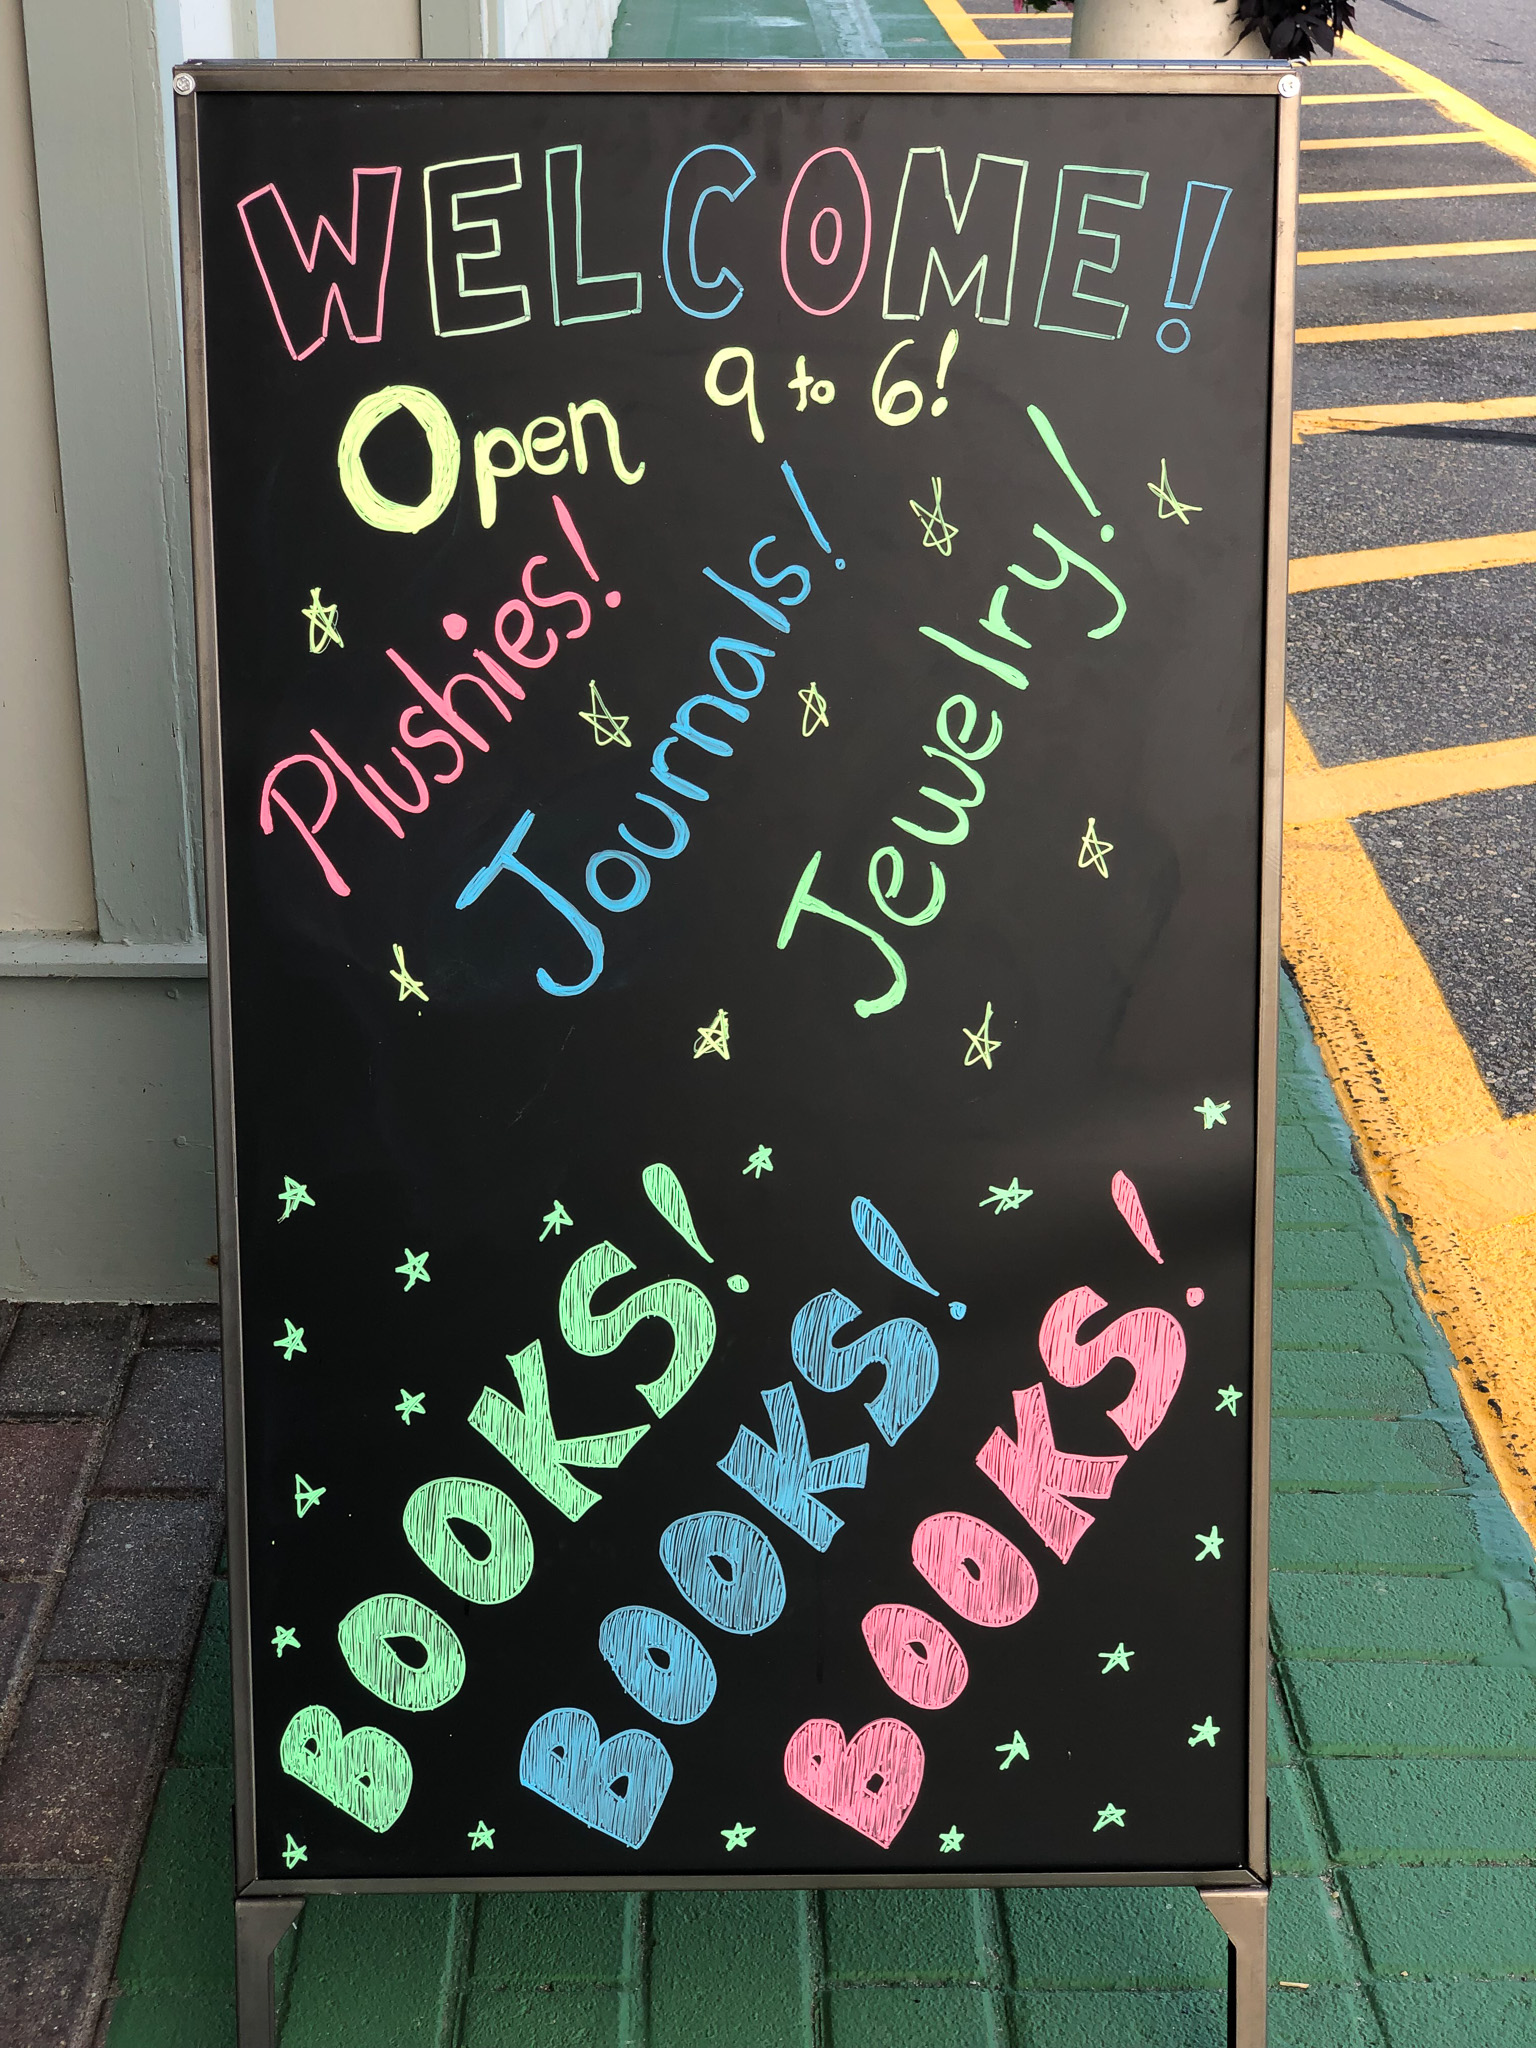 WELCOME!
Open 9 to 6!
Plushies!
Journals!
Jewelry!
BOOKS!
BOOKS!
BOOKS!